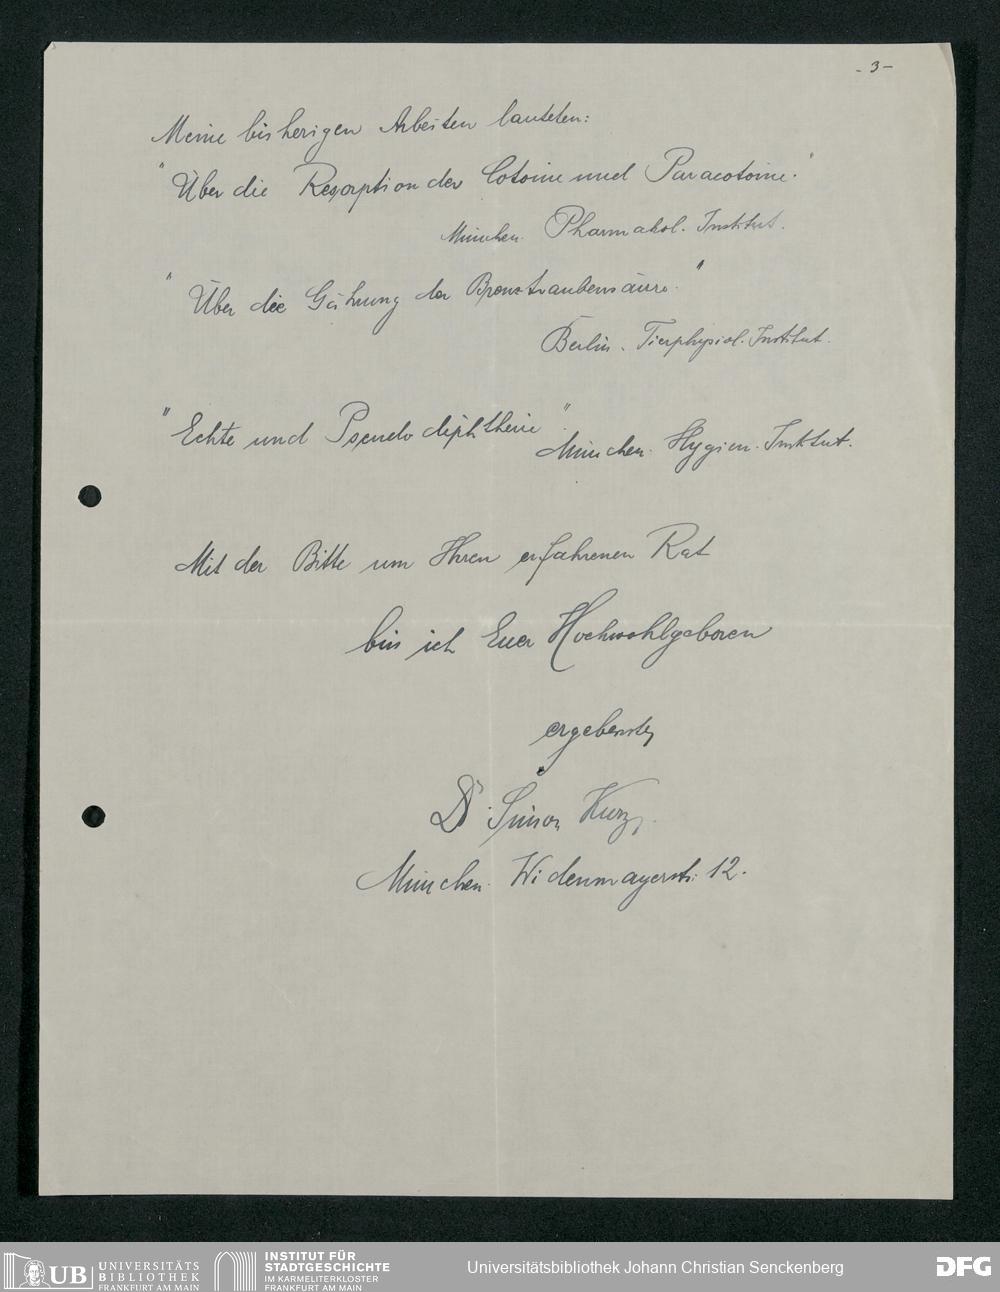 - 3 -
Meine bisherigen Arbeiten lauteten:
"Über die Resorption der Cotoine und Paracotoine."
München. Pharmakol. Institut.
"Über die Gährung der Brenztraubensäure."
Berlin. Tierphysiol. Institut.
"Echte und Pseudodiphtherie".
München. Hygien. Institut.
Mit der Bitte um Ihren erfahrenen Rat
bin ich Euer Hochwohlgeboren
ergebenster
Dr. Simon Kurz.
München. Widenmayerstr. 12.
UB UNIVERSITÄTS
BIBLIOTHEK
FRANKFURT AM MAIN
INSTITUT FÜR
STADTGESCHICHTE
IM KARMELITERKLOSTER
FRANKFURT AM MAIN
Universitätsbibliothek Johann Christian Senckenberg
DFG